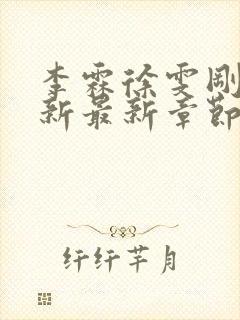 李霖徐雯刚
新最新章节
纤纤芊月